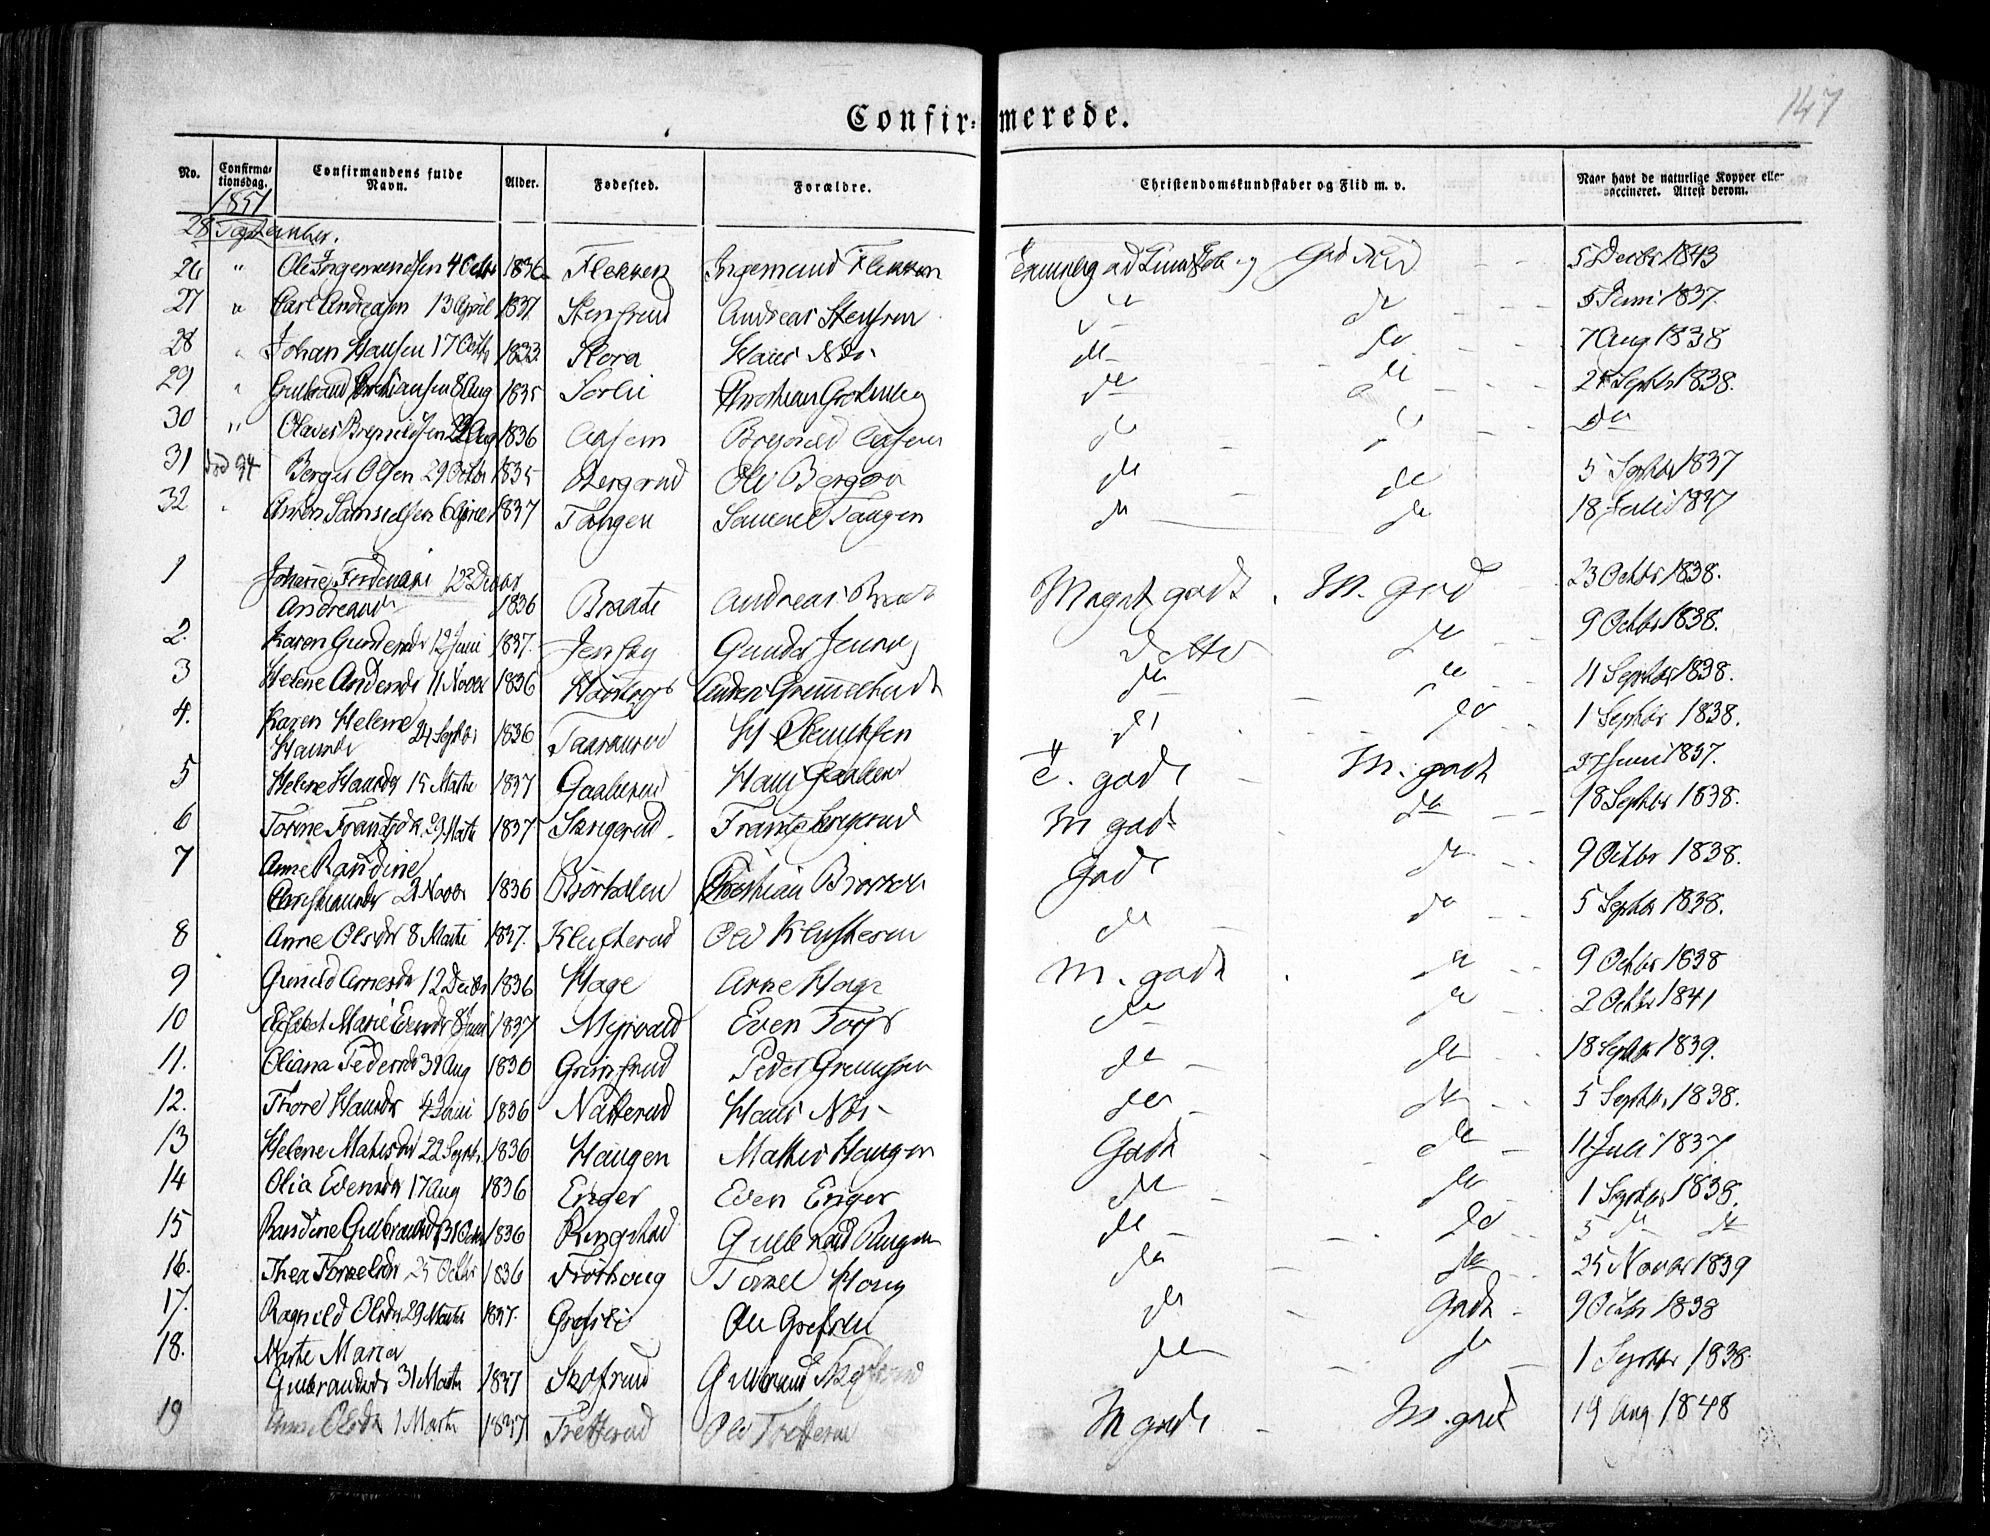 147
Confir- merede.
No. Confirma-tionsdag. Confirmandens fulde Navn. Alder. Fødested. Forældre. Christendomskundskaber og Flid m. v. Naar havt de naturlige Kopper eller vaccineret. Attest derom.
1851
28 September.
26 " Ole Ingemundsen 4 Octbr 1836 Flekken Ingemund Flekken God Flid 5 Decbr 1843
27 " Carl Andreasen 13 April 1837 Stensrud Andreas Stensrud do do 5 Juni 1837.
28 " Johan Hansen 17 Octb 1833 Flora Hans Næs do do 7 Aug 1838
29 " Gulbrand Christiansen 8 Aug 1835 Sørlie Christian do do 24 Septbr 1838.
30 " Olaves Brynildsen 22 Aug 1836 Aasen Brynild Aasen do do do
31 Berger Olsen 29 Octbr 1835 Bergerud Ole Bergerud do do 5 Septbr 1837
32 " Anton Samuelsen 6 1837 Tangen Samuel Tangen do do 18 Juli 1837
1 Johanne Ferdenane 12 Decbr
Andreasdr 1836 Braate Andreas Braate Meget godt. M. god 23 Octbr 1838.
2. Karen Gundersdr 12 Juni 1837. Jensby Gunder Jensby detto do 9 Octbr 1838.
3 Helene Andersdr 11 Novbr 1836 Anders do do 11 Septbr 1838.
4. Karen Helene
Hansdr 24 Septbr 1836 H do do 1 Septbr 1838.
5 Helene Hansdr 15 Marts 1837 Gaaserud Hans Gaaserud T. godt M. godt 27 Juni 1837.
6 Torine Frantzdr 29 Marts 1837 Sangerud Frantz Sangerud M godt do 18 Septbr 1838.
7 Anne Randine
Christiansdr 21 Novbr 1836 Bjørkolen Christian Godt do 9 Octbr 1838.
8 Anne Olsdr 8 Marts 1837. Klufterud Ole Klufterud do do 5 Septbr 1838.
9 Gunild Arnesdr 12 Decbr 1836 Hage Arne Hage M. godt do 9 Octbr 1838
10 Elisabet Marie Evensdr 8 Juni 1837 Myrvold Even Torp do do 2 Octbr 1841
11. Oliana Pedersdr 31 Aug 1836 Grimsrud Peder Grimsrud do do 18 Septbr 1839.
12. Thore Hansdr 4 Juni 1836 Natterud Hans Næs do do 5 Septbr 1838.
13 Helene Mathisdr 22 Septbr. 1836 Haugen Mathis Haugen Godt do 11 Juli 1837
14 Olia Evensdr 17 Aug 1836 Enger Even Enger do do 1 Septbr 1838.
15 Randine Gulbrandsdr 31 Octbr 1836 Ringstad Gulbrand do do 5 do do
16. Thea Torkelsdr 25 Octbr 1836 Frøshoug Torkel Houg do do 25 Novbr 1839
17. Ragnild Olsdr 29 Marts 1837. Grefsli Ole Grefsli do Godt 9 Octbr 1838
18. Marte Maria
Gulbrandsdr 31 Marts 1837 Skofsrud Gulbrand Skofsrud do do 1 Septbr 1838.
19 Anne Olsdr 1 Marts 1837 Fretterud Ole Fretterud M godt M. godt 19 Aug 1848